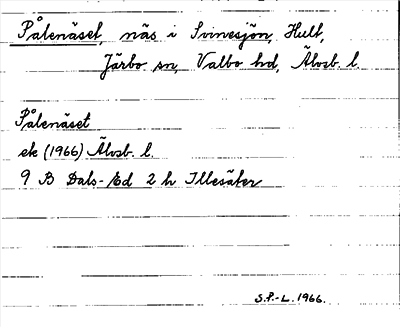 Pålenäset, näs i Svinesjön, Hult,
Järbo sn, Valbo hd, Älvsb. l.
Pålenäset
ek (1966) Älvsb. l.
9 B Dals-Ed 2 h Illesäter
S.P.-L. 1966.